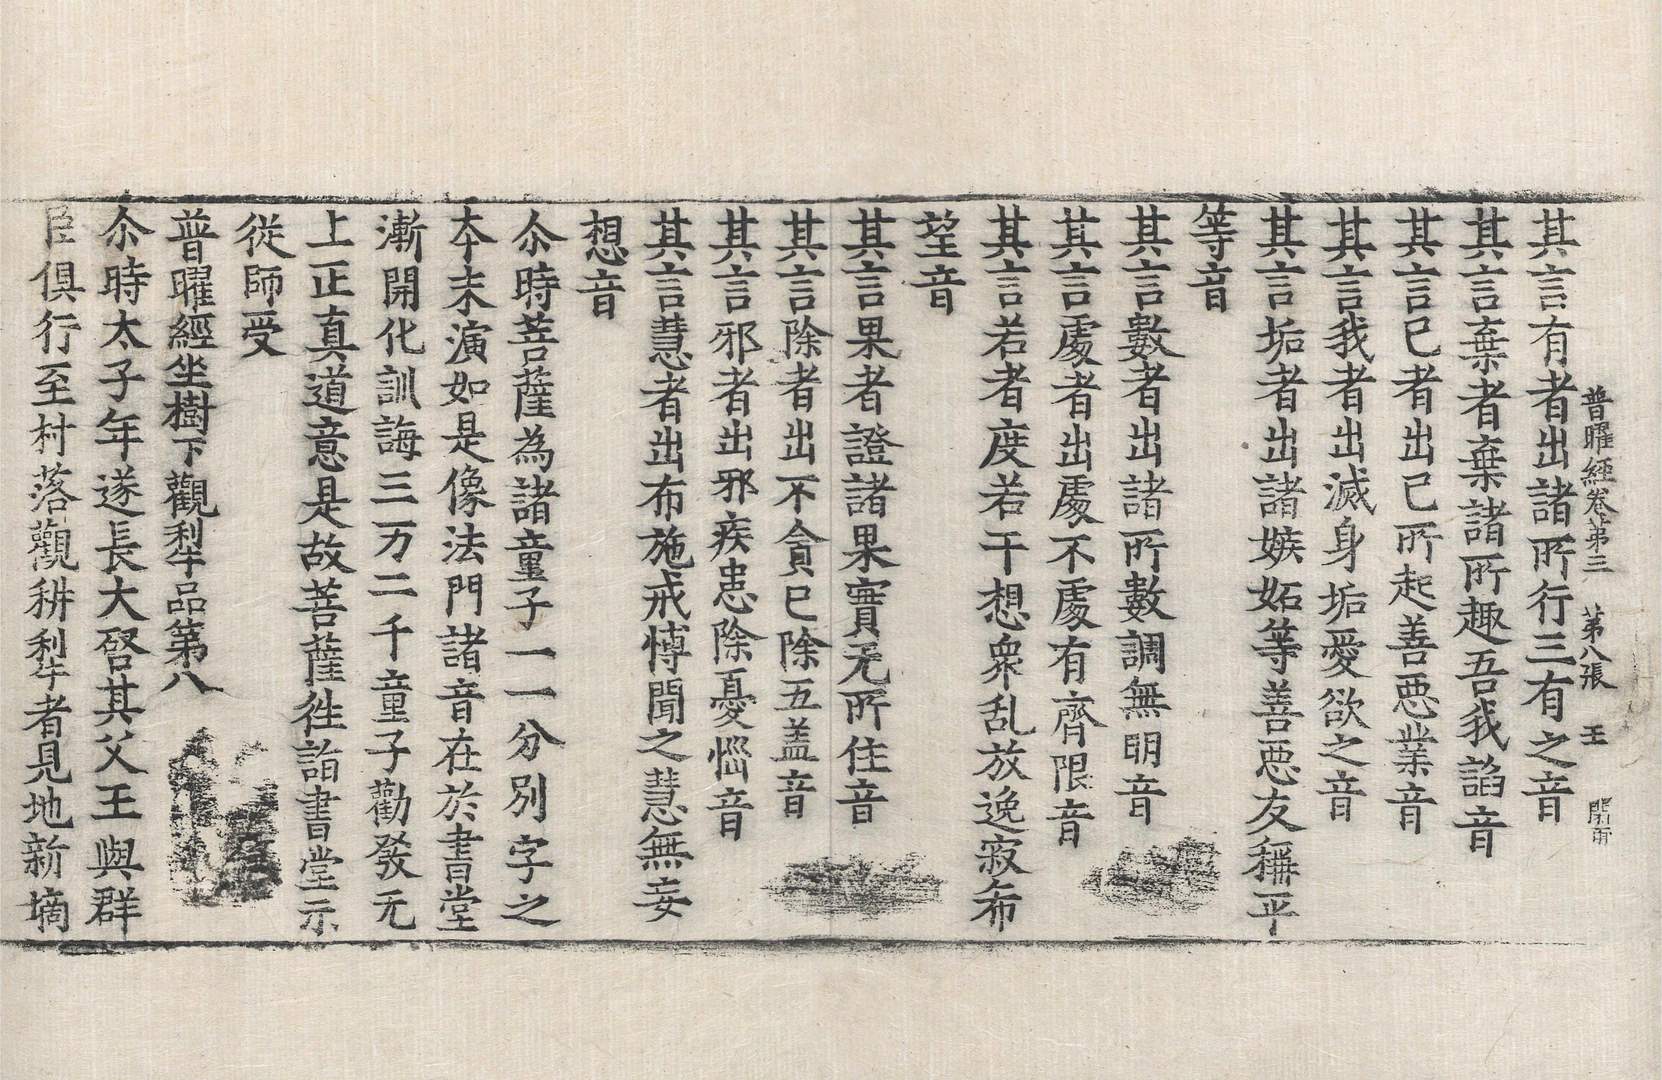 普曜經卷第三 第八張 王
其言有者出諸所行三有之音
其言棄者棄諸所趣吾我謟音
其言已者出已所起善惡業音
其言我者出滅身垢愛欲之音
其言垢者出諸嫉妬等善惡友稱平
等音
其言數者出諸所數調無明音
其言處者出處不處有齊限音
其言若者度若干想衆乱放逸寂布
望音
其言果者證諸果實无所住音
其言除者出不貪已除五盖音
其言邪者出邪疾恚除憂惱音
其言慧者出布施戒博聞之慧無妄
想音
尒時菩薩為諸童子一一分別字之
本末演如是像法門諸音在於書堂
漸開化訓誨三万二千童子勸發无
上正真道意是故菩薩往詣書堂示
從師受
普曜經坐樹下觀犁品第八
尒時太子年遂長大啓其父王與群
臣俱行至村落觀耕犁者見地新墒